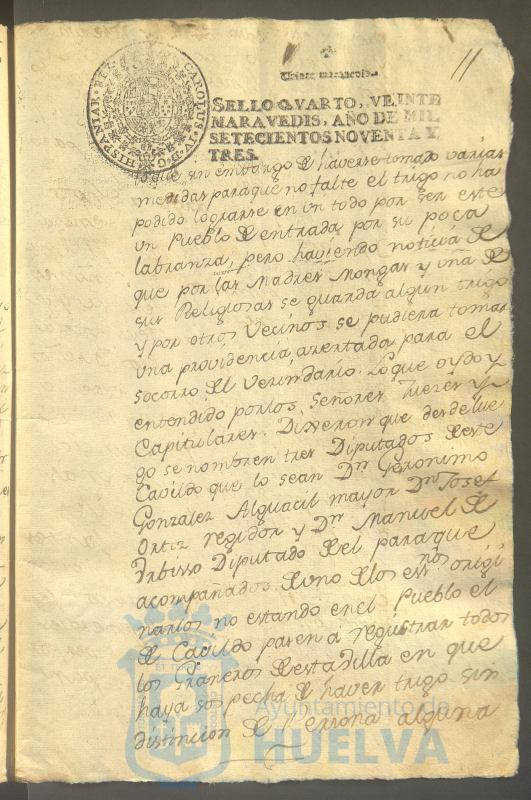 11
Veinte maravedis.
SELLO QVARTO, VEINTE
MARAVEDIS, AÑO DE MIL
SETECIENTOS NOVENTA Y
TRES.
CAROLUS IV D G HISPANIAR REX
que sin embargo de haverse tomado varias
medidas para que no falte el trigo no ha
podido lograrse en un todo por ser este
un Pueblo de entrada por su poca
labranza, pero haviendo noticia de
que por las Madres Mongas y una de
sus Religiosas se guarda algun trigo
y por otros Vecinos se pudiera tomar
una providencia, azertada para el
socorro del Vezindario. Lo que oydo y
entendido por los Señores Juezes y
Capitulares. Dixeron que desde lue
go se nombren tres Diputados de este
Cavildo que lo sean Dn Geronimo
Gonzalez Alguacil mayor Dn Josef
Ortiz regidor y Dn Manuel de
Diputado del para que
acompañados de uno de los esnos origi
narios no estando en el Pueblo el
de Cavildo pasen á registrar todos
los Graneros de esta Villa en que
haya sospecha de haver trigo sin
distincion de Persona alguna
Ayuntamiento de
HUELVA